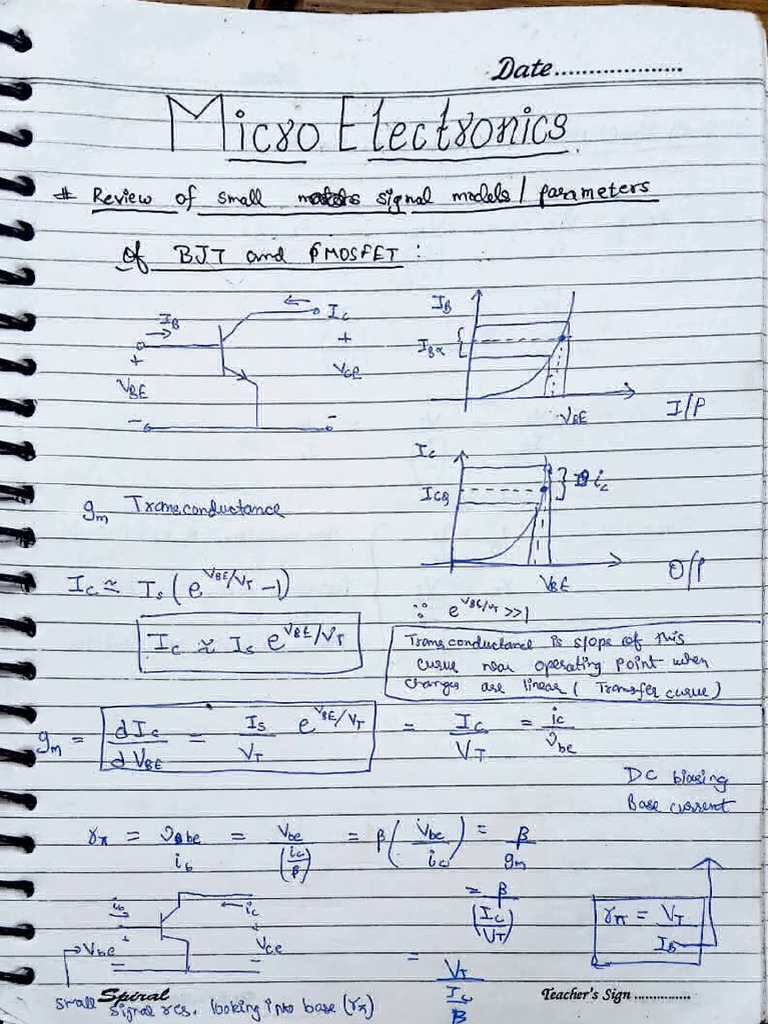 Date....................
Micro Electronics
# Review of small signal models / parameters
of BJT and MOSFET :
I_B
I_C
+
V_BE
-
+
V_CE
-
I_B
V_BE
I/P
I_C
I_CQ
i_c
V_BE
O/P
g_m Transconductance
I_C ≃ I_s (e^{V_BE/V_T} -1)
∵ e^{V_BE/V_T} >>1
I_C ≃ I_s e^{V_BE/V_T}
Transconductance is slope of this
curve near operating point when
changes are linear ( Transfer curve )
g_m = dI_C/dV_BE = I_s/V_T e^{V_BE/V_T} = I_C/V_T = i_c/v_be
DC biasing
Base current
r_π = v_be/i_b = v_be/(i_c/β) = β(v_be/i_c) = β/g_m
= β/(I_C/V_T)
r_π = V_T/I_B
= V_T/(I_C/β)
i_b
i_c
+
V_be
+
V_ce
small signal res. looking into base (r_π)
Spiral
Teacher's Sign ...............